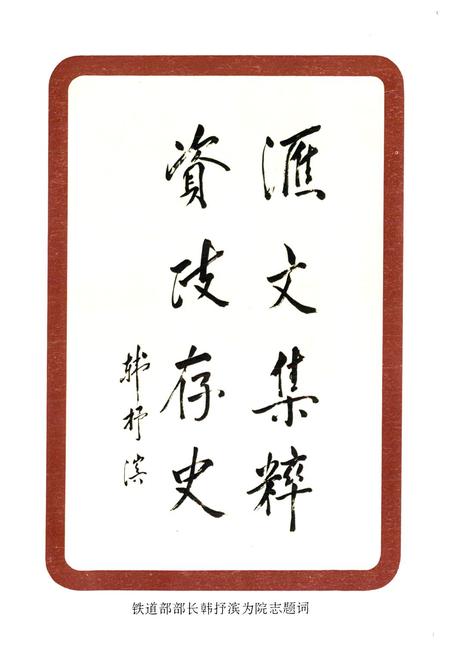 滙文集粹
資政存史
韩抒滨
铁道部部长韩抒滨为院志题词